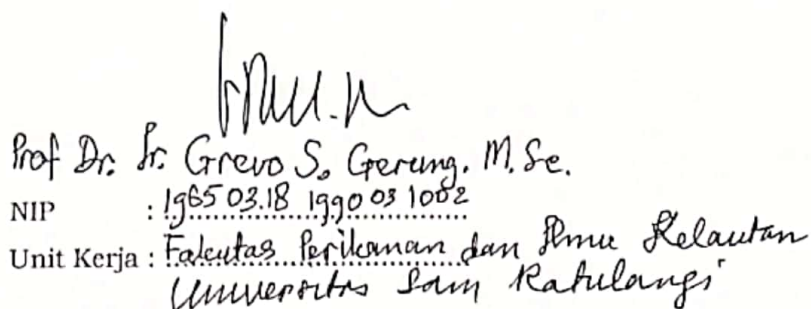 Prof Dr. Ir. Grevo S. Gerung. M.Sc.
NIP : 1965 03.18 1990 03 1002
Unit Kerja : Fakutas Perikanan dan Ilmu Kelautan
Universitas Sam Ratulangi